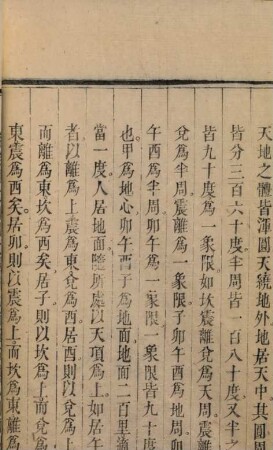 天地之體皆渾圓天繞地外地居天中其圓周
皆分三百六十度半周皆一百八十度又半之
皆九十度爲一象限如坎震離兌爲天周震離
兌爲半周震離爲一象限子卯午酉爲地周卯
午酉爲半周卯午爲一象限一象限皆九十度
也甲爲地心卯午酉子爲地面地面二百里
當一度人居地面隨所處以天頂爲上如居午
者以離爲上震爲東兌爲西居酉則以兌爲上
而離爲東坎爲西矣居子則以坎爲上而兌爲
東震爲西矣居卯則以震爲上而坎爲東離爲